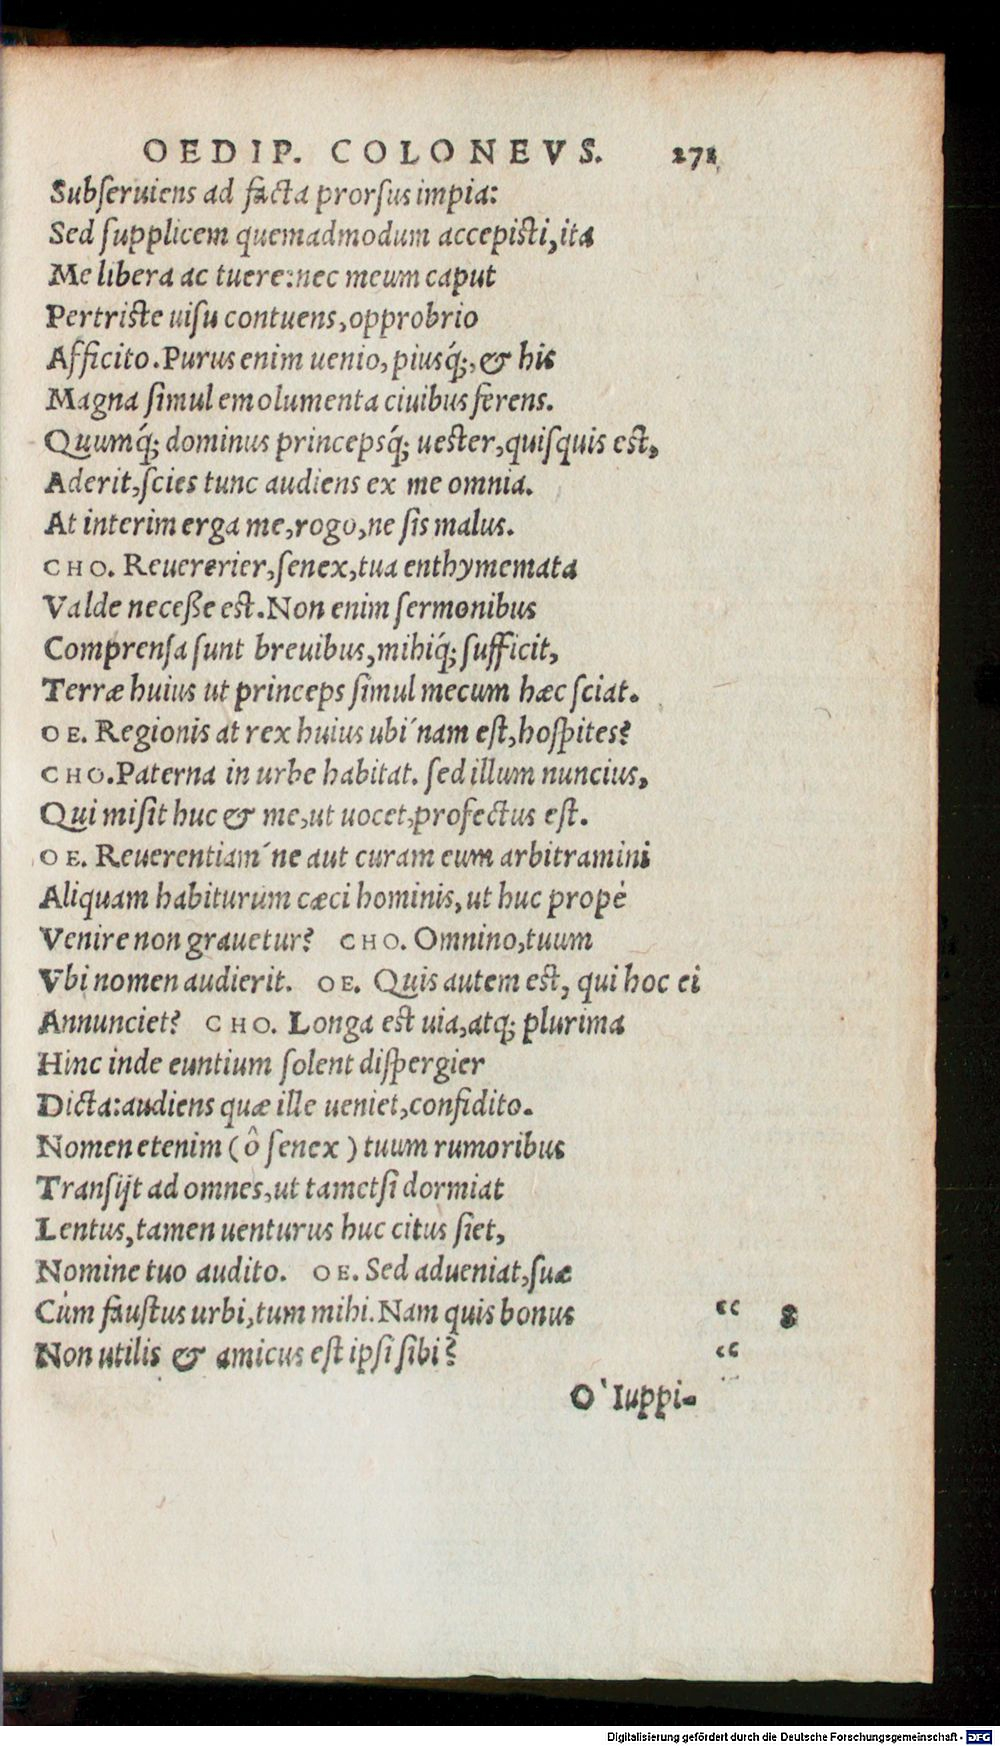 OEDIP. COLONEVS. 271
Subſeruiens ad facta prorſus impia:
Sed ſupplicem quemadmodum accepiſti, ita
Me libera ac tuere: nec meum caput
Pertriſte uiſu contuens, opprobrio
Afficito. Purus enim uenio, piusq́;, & his
Magna ſimul emolumenta ciuibus ferens.
Quumq́; dominus princepsq́; ueſter, quiſquis eſt,
Aderit, ſcies tunc audiens ex me omnia.
At interim erga me, rogo, ne ſis malus.
CHO. Reuererier, ſenex, tua enthymemata
Valde neceße eſt. Non enim ſermonibus
Comprenſa ſunt breuibus, mihiq́; ſufficit,
Terræ huius ut princeps ſimul mecum hæc ſciat.
OE. Regionis at rex huius ubi´nam eſt, hoſpites?
CHO. Paterna in urbe habitat. ſed illum nuncius,
Qui miſit huc & me, ut uocet, profectus eſt.
OE. Reuerentiam´ne aut curam eum arbitramini
Aliquam habiturum cæci hominis, ut huc propè
Venire non grauetur? CHO. Omnino, tuum
Vbi nomen audierit. OE. Quis autem eſt, qui hoc ei
Annunciet? CHO. Longa eſt uia, atq; plurima
Hinc inde euntium ſolent diſpergier
Dicta: audiens quæ ille ueniet, confidito.
Nomen etenim (ô ſenex) tuum rumoribus
Tranſijt ad omnes, ut tametſi dormiat
Lentus, tamen uenturus huc citus ſiet,
Nomine tuo audito. OE. Sed adueniat, ſuæ
Cùm fauſtus urbi, tum mihi. Nam quis bonus “ 8
Non utilis & amicus eſt ipſi ſibi? “
O` Iuppi-
Digitalisierung gefördert durch die Deutsche Forschungsgemeinschaft - DFG